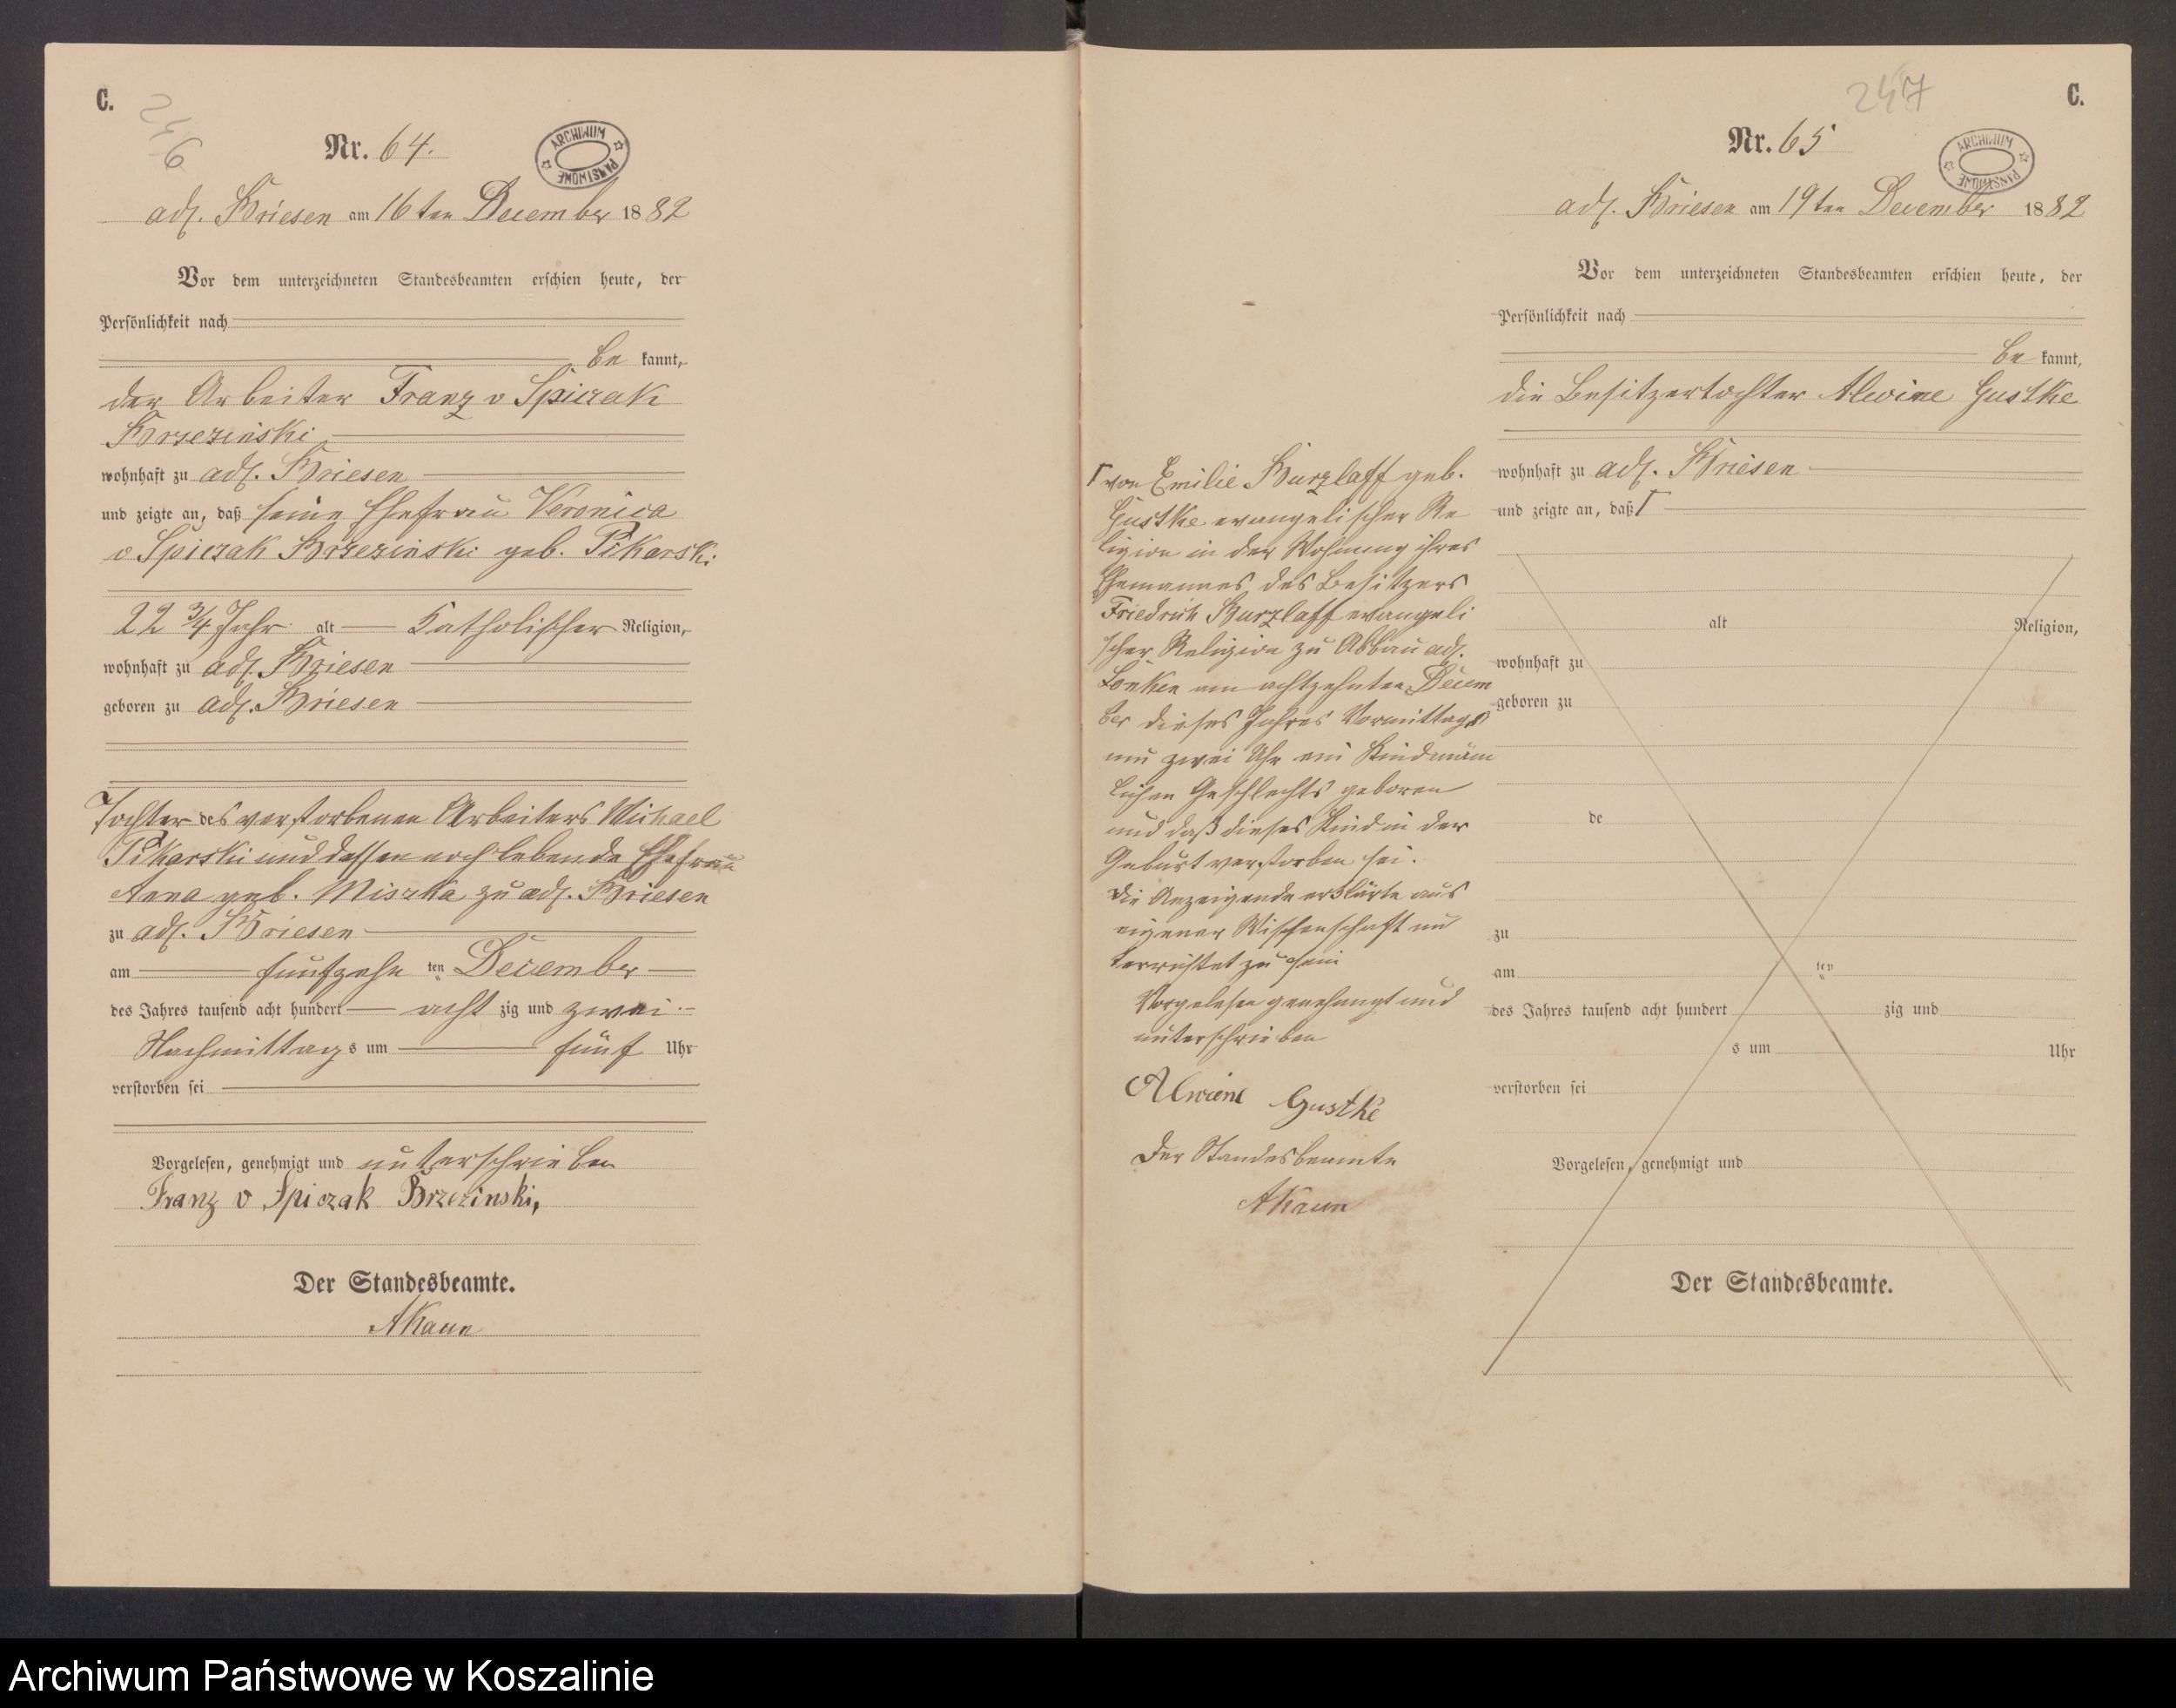 C.
246
Nr. 64.
ARCHIWUM PAŃSTWOWE
adl. Briesen am 16ten December 1882
Vor dem unterzeichneten Standesbeamten erschien heute, der
Persönlichkeit nach
be kannt,
der Arbeiter Franz v Spiczak
Brzezinski
wohnhaft zu adl. Briesen
und zeigte an, daß seine Ehefrau Veronica
v Spiczak Brzezinski geb. Pikarski
22 3/4 Jahr alt Katholischer Religion,
wohnhaft zu adl. Briesen
geboren zu adl. Briesen
Tochter des verstorbenen Arbeiters Michael
Pikarski und dessen noch lebende Ehefrau
Anna geb. Miszka zu adl. Briesen
zu adl. Briesen
am fünfzehn ten December
des Jahres tausend acht hundert acht zig und zwei
Nachmittags um fünf Uhr
verstorben sei
Vorgelesen, genehmigt und unterschrieben
Franz v Spiczak Brzezinski,
Der Standesbeamte.
AKaun
247
C.
Nr. 65
ARCHIWUM PAŃSTWOWE
adl. Briesen am 19ten December 1882
Vor dem unterzeichneten Standesbeamten erschien heute, der
Persönlichkeit nach
be kannt,
die Besitzertochter Alwine Gustke
wohnhaft zu adl. Briesen
und zeigte an, daß Γ
Γ von Emilie Burzlaff geb.
Gustke evangelischer Re
ligion in der Wohnung ihres
Ehemannes des Besitzers
Friedrich Burzlaff evangeli
scher Religion zu Abbau adl.
Lonken am achtzehnten Decem
ber dieses Jahres Vormittags
um zwei Uhr ein Kind männ
lichen Geschlechts geboren
und daß dieses Kind in der
Geburt verstorben sei.
Die Anzeigende erklärte aus
eigener Wissenschaft un
terrichtet zu sein
Vorgelesen genehmigt und
unterschrieben
Alwiene Gustke
Der Standesbeamte
AKaun
alt Religion,
wohnhaft zu
geboren zu
de
zu
am ten
des Jahres tausend acht hundert zig und
s um Uhr
verstorben sei
Vorgelesen, genehmigt und
Der Standesbeamte.
Archiwum Państwowe w Koszalinie